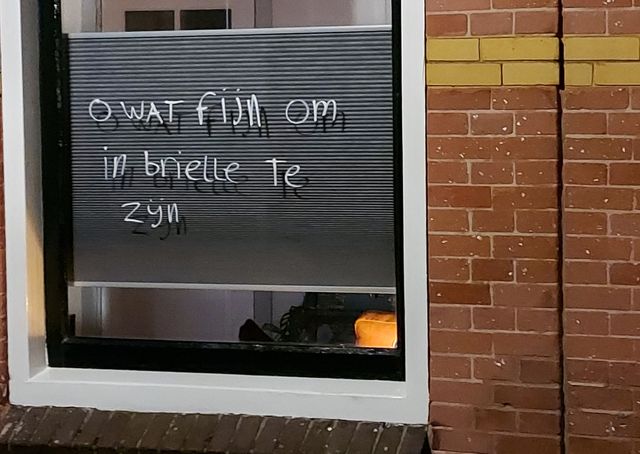 O WAT Fijn Om
in brielle Te
Zijn